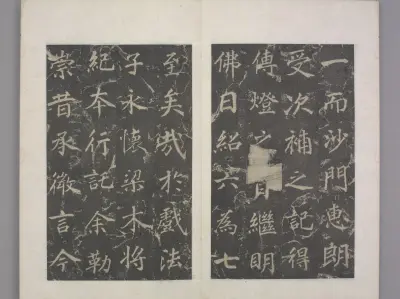 一而沙門惠朗
受次補之記得
傳燈之旨繼明
佛日紹六為七
至矣哉於戲法
子永懷梁木將
紀本行託余勒
崇昔承微言今